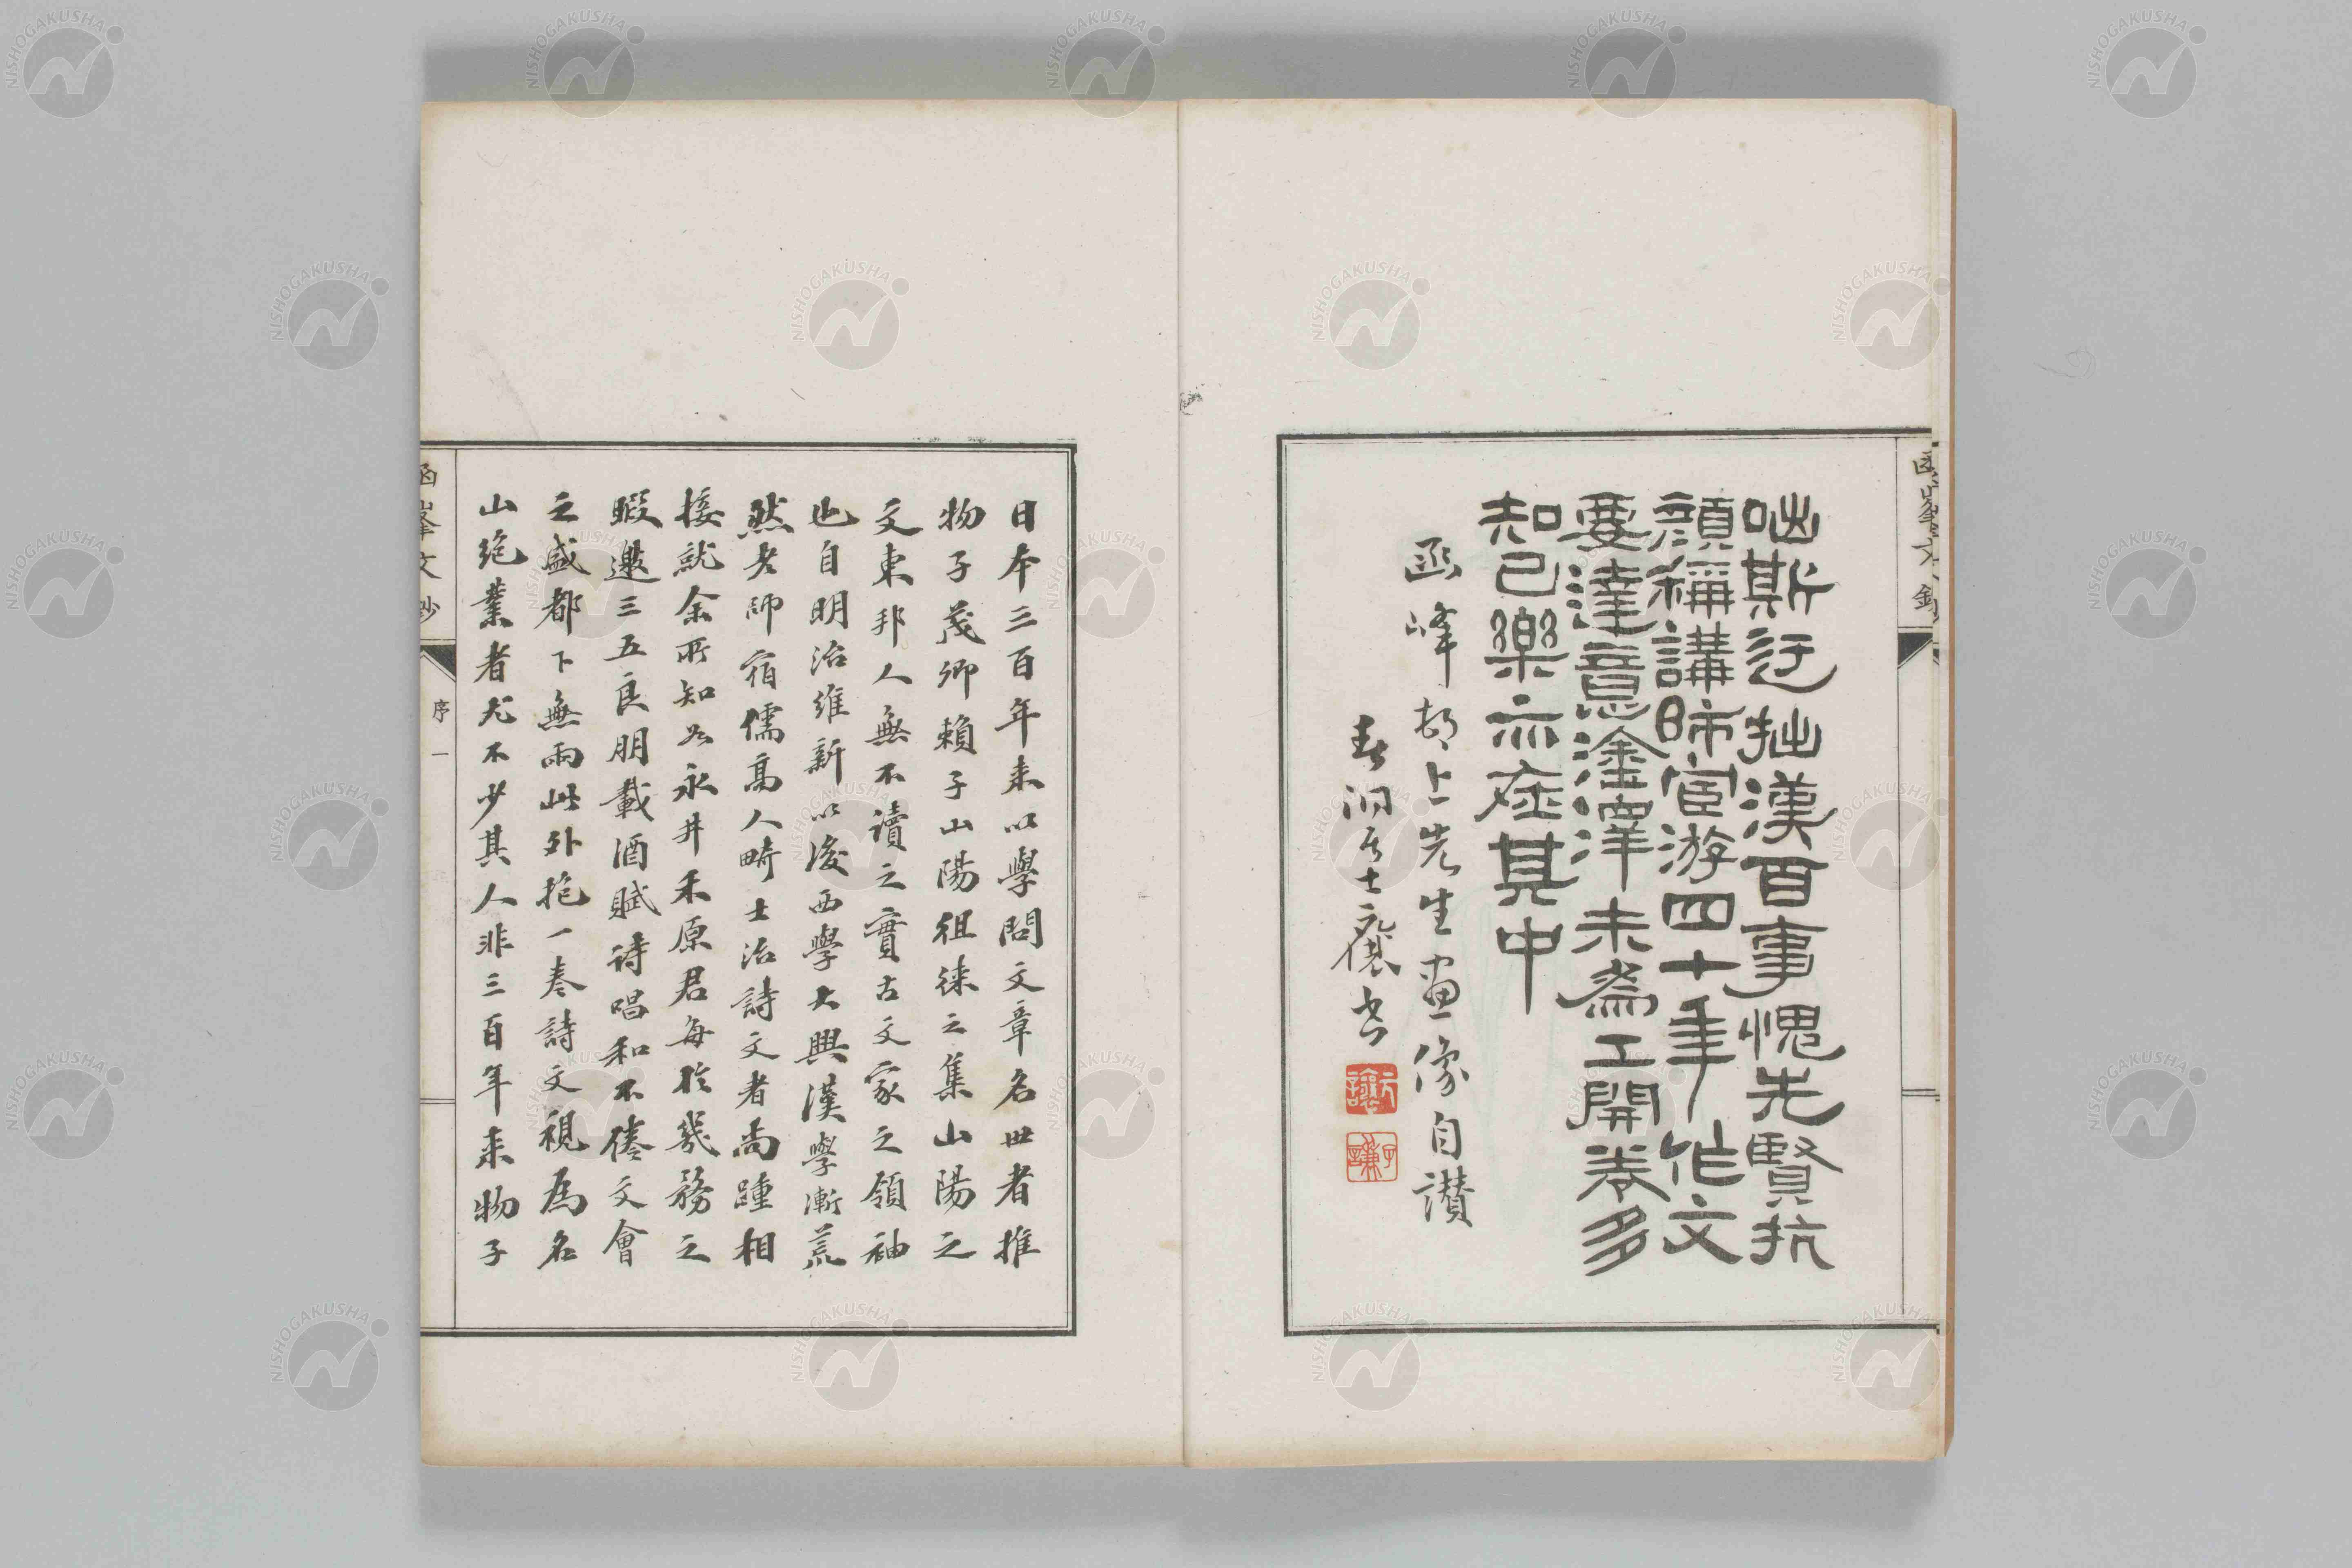 咄斯迂拙漢百事愧先賢抗
顔稱講師宦游四十年作文
要達意塗澤未為工開卷多
知己樂亦在其中
函峰村上先生畫像自讃
春洞居士褱書
日本三百年来以學問文章名世者推
物子茂卿賴子山陽徂徠之集山陽之
文東邦人無不讀之實古文家之領袖
也自明治維新以後西學大興漢學漸荒
然老師宿儒高人畸士治詩文者尚踵相
接就余所知若永井禾原君每於幾務之
暇邀三五良朋載酒賦詩唱和不倦文會
之盛都下無兩此外抱一卷詩文視為名
山絶業者尤不少其人非三百年来物子
函峯文鈔
序
一
NISHOGAKUSHA